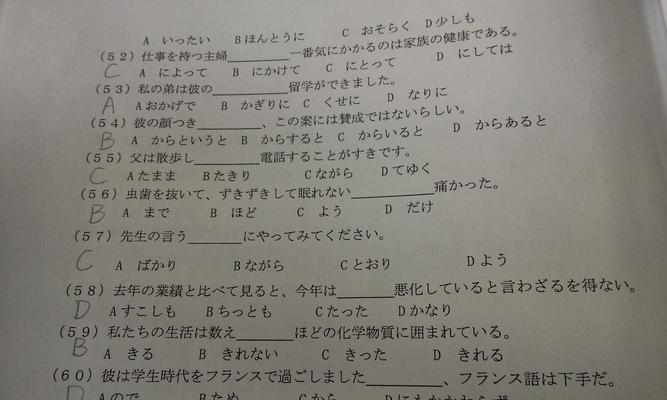 A いったい Bほんとうに C おそらく D少しも
(52)仕事を持つ主婦________一番気にかかるのは家族の健康である。
C A によって B にかけて C にとって D にしては
(53)私の弟は彼の________留学ができました。
A Aおかげで B かぎりに C くせに D なりに
(54)彼の顔つき________、この案には賛成ではないらしい。
B A からというと B からすると C からいると D からあると
(55)父は散歩し________電話することがすきです。
C Aたまま Bたきり Cながら Dてゆく
(56)虫歯を抜いて、ずきずきして眠れない________痛かった。
B A まで B ほど C よう D だけ
(57)先生の言う______にやってみてください。
C A ばかり Bながら Cとおり Dよう
(58)去年の業績と比べて見ると、今年は______悪化していると言わざるを得ない。
D Aすこしも Bちっとも Cたった Dかなり
(59)私たちの生活は数え______ほどの化学物質に囲まれている。
B A きる B きれない C きった D きれる
(60)彼は学生時代をフランスで過ごしました________、フランス語は下手だ。
D Aので Bため Cから Dにもかかわらず